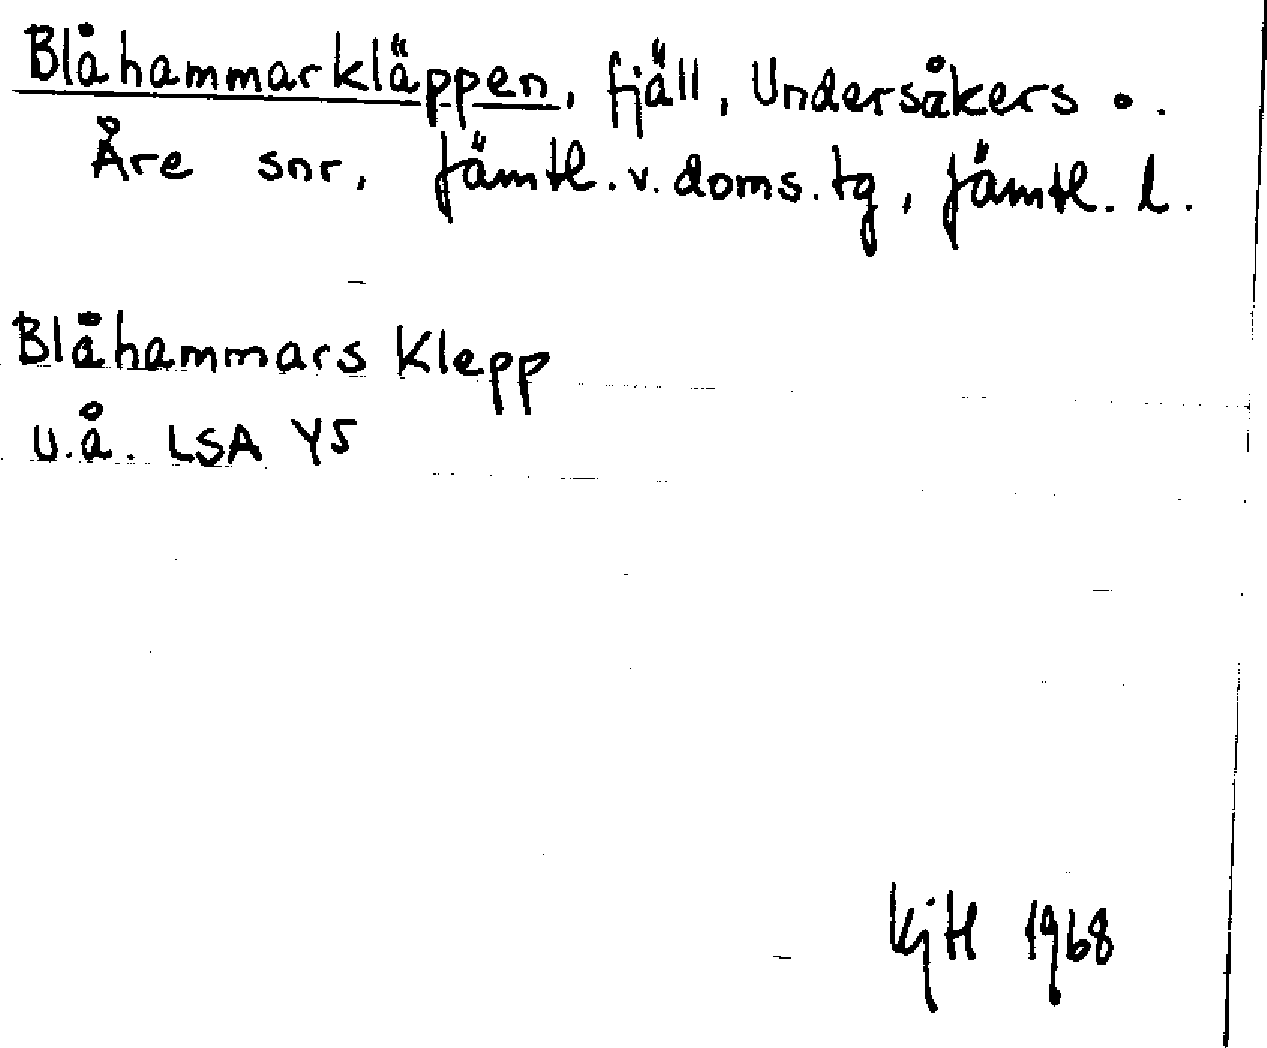 Blåhammarkläppen, fjäll, Undersåkers o.
Åre snr, Jämtl. v. doms. tg, Jämtl. l.
Blåhammars Klepp
u.å. LSA Y5
KjH 1968